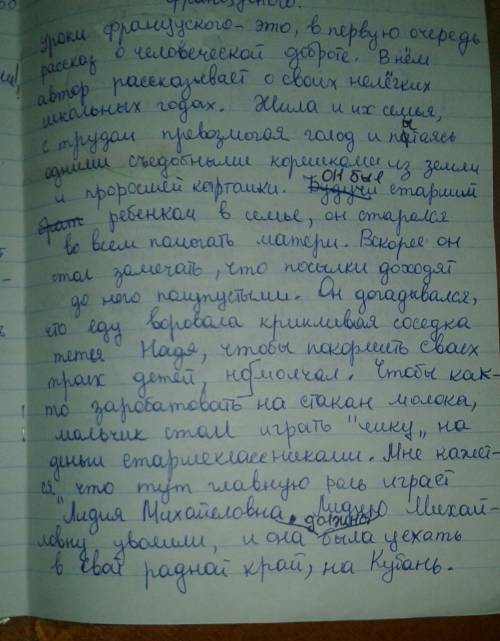 французского.
Уроки французского - это, в первую очередь
рассказ о человеческой доброте. В нём
автор рассказывает о своих нелёгких
школьных годах. Жила и их семья,
с трудом превозмогая голод и питаясь
одними съедобными корешками из земли
и проросшей картошки. Будучи он был старшим
брат ребенком в семье, он старался
во всем помогать матери. Вскоре он
стал замечать, что посылки доходят
до него полупустыми. Он догадывался,
что еду воровала крикливая соседка
тетя Надя, чтобы покормить своих
троих детей, но молчал. Чтобы как-
то заробатовать на стакан молока,
мальчик стал играть "чику„ на
деньги старшеклассниками. Мне кажет-
ся что тут главную роль играет
"Лидия Михайеловна. Лидию Михай-
ловну уволили, и она должна была уехать
в свой радной край, на Кубань.